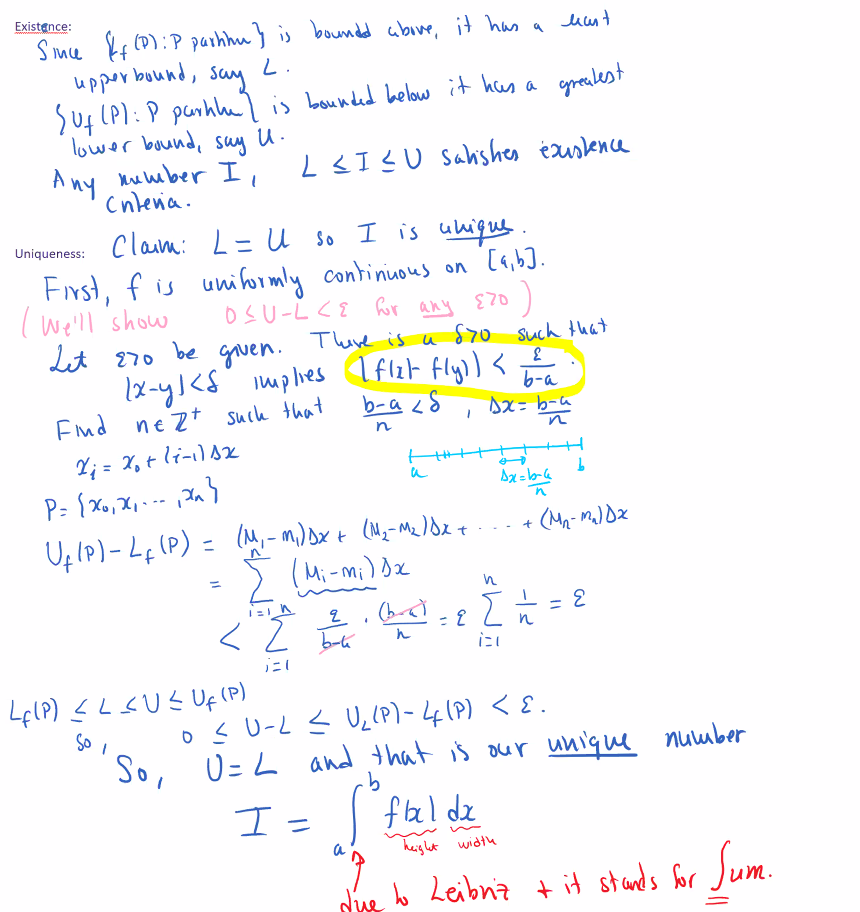 Existence:
Since {L_f(P): P partition} is bounded above, it has a least
upper bound, say L.
{U_f(P): P partition} is bounded below it has a greatest
lower bound, say U.
Any number I, L ≤ I ≤ U satisfies existence
Criteria.
Uniqueness: Claim: L = U so I is unique.
First, f is uniformly continuous on [a,b].
(We'll show 0 ≤ U-L < ε for any ε>0)
Let ε>0 be given. There is a δ>0 such that
|x-y|<δ implies |f(x)-f(y)| < ε/(b-a).
Find n∈Z⁺ such that (b-a)/n < δ, Δx = (b-a)/n
x_i = x_0 + (i-1)Δx
a b
Δx = (b-a)/n
P = {x_0, x_1, ..., x_n}
U_f(P) - L_f(P) = (M_1-m_1)Δx + (M_2-m_2)Δx + .... + (M_n-m_n)Δx
= ∑_{i=1}^{n} (M_i-m_i)Δx
< ∑_{i=1}^{n} ε/(b-a) · (b-a)/n = ε ∑_{i=1}^{n} 1/n = ε
L_f(P) ≤ L ≤ U ≤ U_f(P)
so, 0 ≤ U-L ≤ U_L(P) - L_f(P) < ε.
So, U = L and that is our unique number
I = ∫_a^b f(x) dx
height width
due to Leibniz + it stands for ∫um.